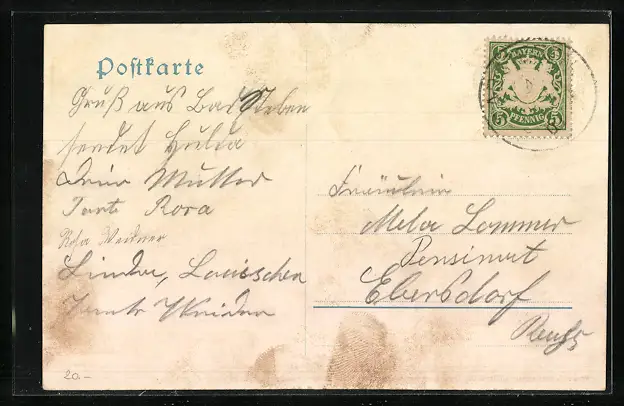 Postkarte
BAYERN
5 5
PFENNIG
Gruß aus Bad Steben
sendet Hulda
Deine Mutter
Tante Rora
Rosa
Linda, Louischen
Tante
Fräulein
Mela Lommer
Pensionat
Ebersdorf
Reuß
20.-